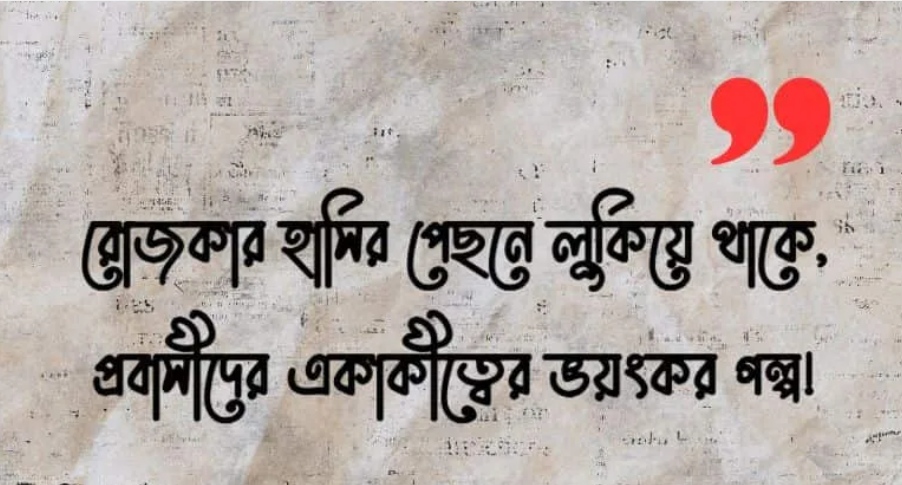 রোজকার হাসির পেছনে লুকিয়ে থাকে,
প্রবাসীদের একাকীত্বের ভয়ংকর গল্প!